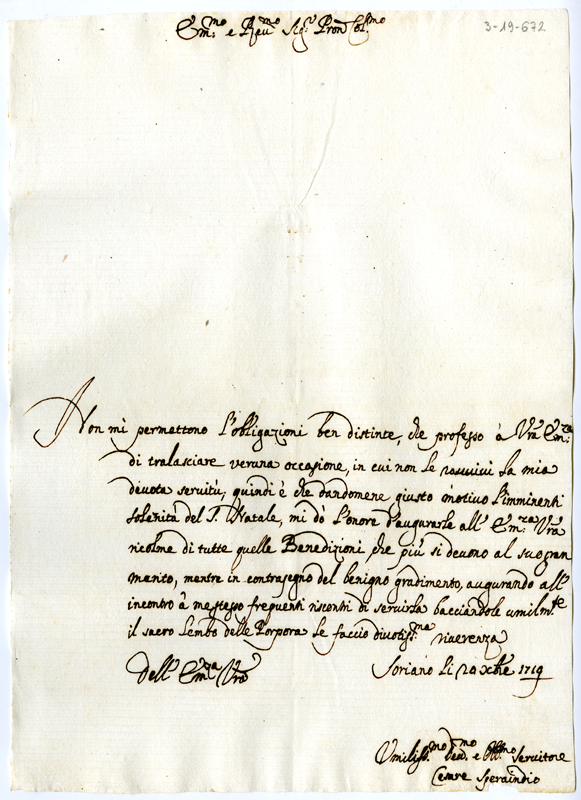 Em:mo e Reu:mo Sig:r Pron Col:mo
3-19-672
Non mi permettono l'obligazioni ben distinte, che professo à Vra Em:za
di tralasciare veruna occasione, in cui non le rauuiui la mia
deuota seruitù, quindi è che dandomene giusto motiuo l'imminenti
solenità del S. Natale, mi dò l'onore d'augurarle all' Em:za Vra
ricolme di tutte quelle Benedizioni, che più si deuono al suo gran
merito, mentre in contrasegno del benigno gradimento, augurando all'
incontro à me stesso frequenti riscontri di seruirla bacciandole umilm:te
il sacro lembo della Porpora le faccio diuotiss:ma riuerenza
Dell' Em:za Vra
Soriano li 20 xbre 1719
Vmiliss:mo deu:mo e Obb:mo seruitore
Cesare Speraindio